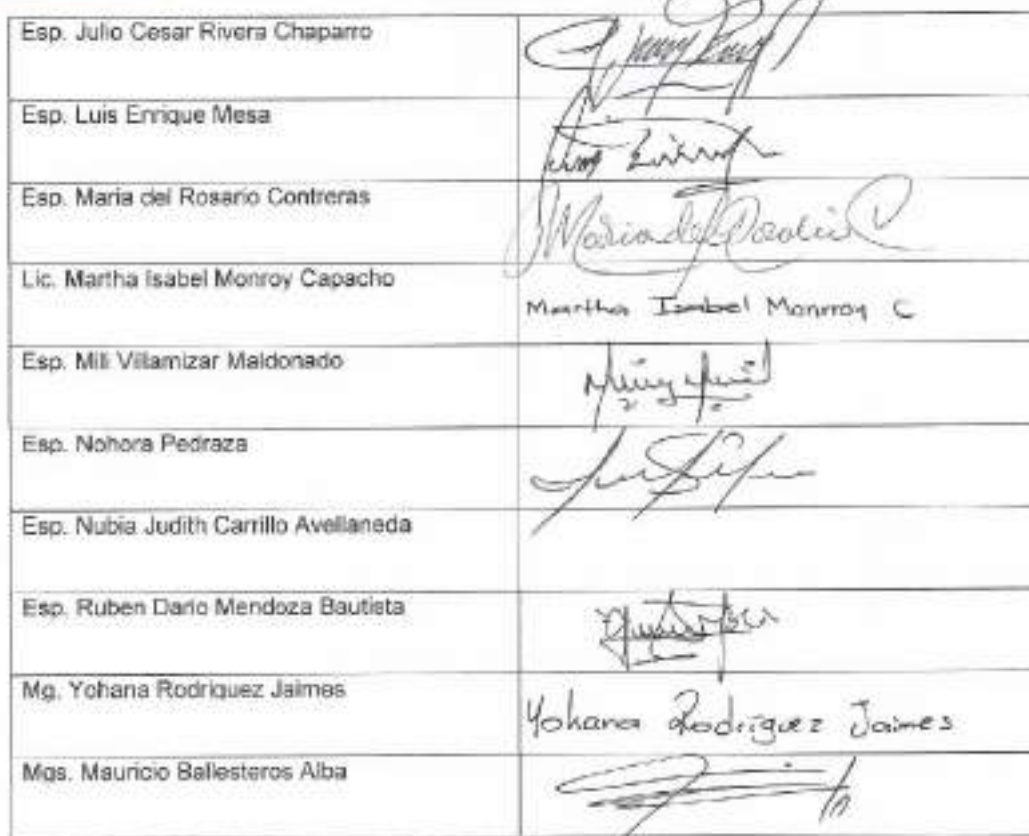 Esp. Julio Cesar Rivera Chaparro
Esp. Luis Enrique Mesa
Esp. Maria del Rosario Contreras
Lic. Martha Isabel Monroy Capacho
Martha Isabel Monrroy C
Esp. Mili Villamizar Maldonado
Esp. Nohora Pedraza
Esp. Nubia Judith Carrillo Avellaneda
Esp. Ruben Dario Mendoza Bautista
Mg. Yohana Rodriguez Jaimes
Yohana Rodríguez Jaimes
Mgs. Mauricio Ballesteros Alba